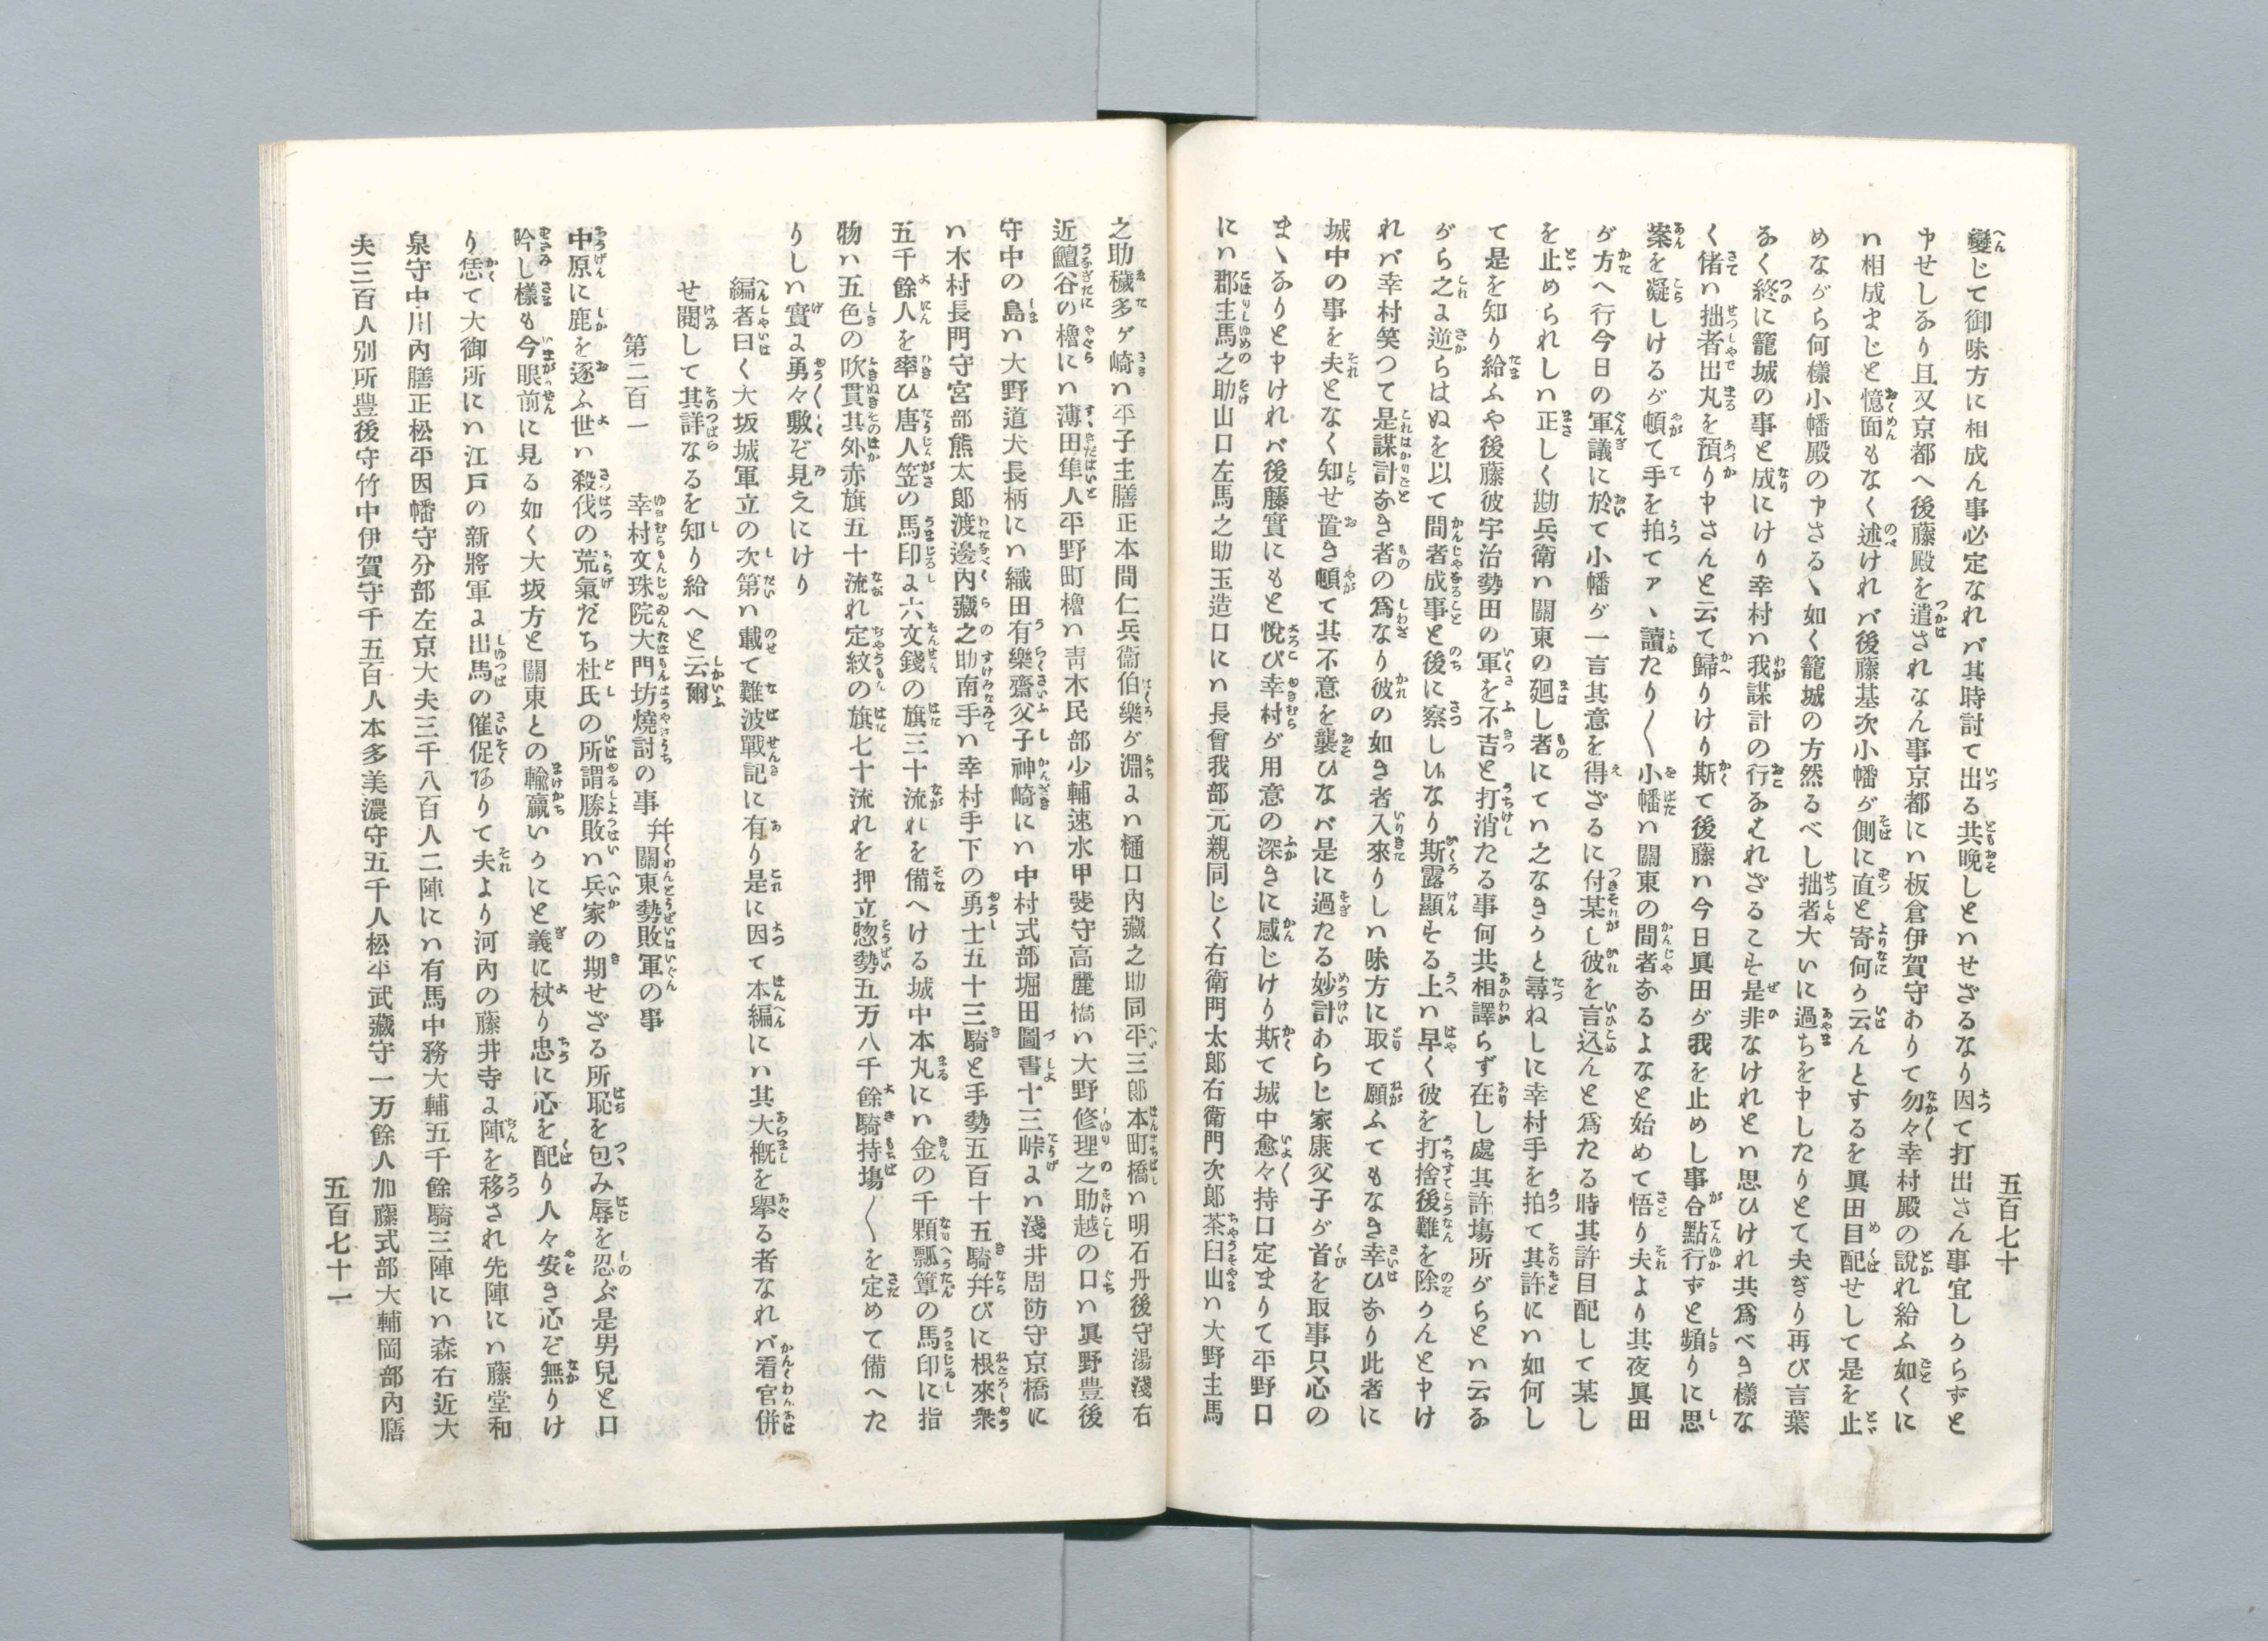 五百七十
變じて御味方に相成ん事必定なれバ其時討て出る共晩しとハせざるなり因て打出さん事宜しからずと
申せしなり且又京都へ後藤殿を遣されなん事京都にハ板倉伊賀守ありて勿々幸村殿の說れ給ふ如くに
ハ相成まじと憶面もなく述けれバ後藤基次小幡が側に直と寄何か云んとするを眞田目配せして是を止
めながら何樣小幡殿の申さるヽ如く籠城の方然るべし拙者大いに過ちを申したりとて夫ぎり再び言葉
なく終に籠城の事と成にけり幸村ハ我謀計の行なはれざるこそ是非なけれとハ思ひけれ共爲べき樣な
く偖ハ拙者出丸を預り申さんと云て歸りけり斯て後藤ハ今日眞田が我を止めし事合點行ずと頻りに思
案を凝しけるが頓て手を拍てアヽ讀たり〱小幡ハ關東の間者なるよなと始めて悟り夫より其夜眞田
が方へ行今日の軍議に於て小幡が一言其意を得ざるに付某し彼を言込んと爲たる時其許目配して某し
を止められしハ正しく勘兵衛ハ關東の廻し者にてハ之なきかと尋ねしに幸村手を拍て其許にハ如何し
て是を知り給ふや後藤彼宇治勢田の軍を不吉と打消たる事何共相譯らず在し處其許塲所がらとハ云な
がら之に逆らはぬを以て間者成事と後に察しいなり斯露顯する上ハ早く彼を打捨後難を除かんと申け
れバ幸村笑つて是謀計なき者の爲なり彼の如き者入來りしハ味方に取て願ふてもなき幸ひなり此者に
城中の事を夫となく知せ置き頓て其不意を襲ひなバ是に過たる妙計あらじ家康父子が首を取事只心の
まヽなりと申けれバ後藤實にもと悅び幸村が用意の深きに感じけり斯て城中愈々持口定まりて平野口
にハ郡主馬之助山口左馬之助玉造口にハ長曾我部元親同じく右衛門太郎右衛門次郎茶臼山ハ大野主馬
之助穢多ヶ崎ハ平子主膳正本間仁兵衞伯樂が淵にハ樋口内藏之助同平三郎本町橋ハ明石丹後守湯淺右
近鱣谷の櫓にハ薄田隼人平野町櫓ハ靑木民部少輔速水甲斐守高麗橋ハ大野修理之助越の口ハ眞野豊後
守中の島ハ大野道犬長柄にハ織田有樂齋父子神崎にハ中村式部堀田圖書十三峠にハ淺井周防守京橋に
ハ木村長門守宮部熊太郎渡邊内藏之助南手ハ幸村手下の勇士五十三騎と手勢五百十五騎幷びに根來衆
五千餘人を率ひ唐人笠の馬印に六文錢の旗三十流れを備へける城中本丸にハ金の千顆瓢簞の馬印に指
物ハ五色の吹貫其外赤旗五十流れ定紋の旗七十流れを押立惣勢五万八千餘騎持塲〱を定めて備へた
りしハ實に勇々敷ぞ見えにけり
編者曰く大坂城軍立の次第ハ載て難波戰記に有り是に因て本編にハ其大槪を擧る者なれバ看官併
せ閱して其詳なるを知り給へと云爾
第二百一　幸村文珠院大門坊燒討の事　幷關東勢敗軍の事
中原に鹿を逐ふ世ハ殺伐の荒氣だち杜氏の所謂勝敗ハ兵家の期せざる所恥を包み辱を忍ぶ是男兒と口
吟し樣も今眼前に見る如く大坂方と關東との輸贏いかにと義に杖り忠に心を配り人々安き心ぞ無りけ
り恁て大御所にハ江戸の新將軍に出馬の催促ありて夫より河内の藤井寺に陣を移され先陣にハ藤堂和
泉守中川内膳正松平因幡守分部左京大夫三千八百人二陣にハ有馬中務大輔五千餘騎三陣にハ森右近大
夫三百人別所豊後守竹中伊賀守千五百人本多美濃守五千人松平武藏守一万餘人加藤式部大輔岡部内膳
五百七十一